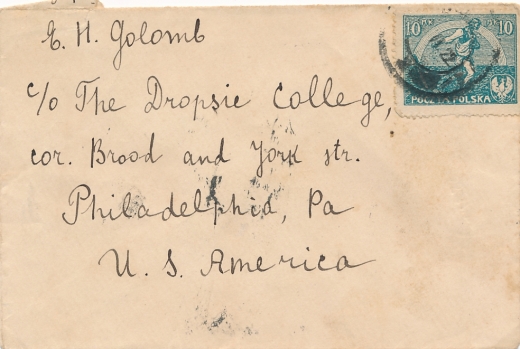 E. H. Golomb
c/o The Dropsie College,
cor. Brood and York str.
Philadelphia, Pa
U. S. America
10 MK 10
POCZTA POLSKA